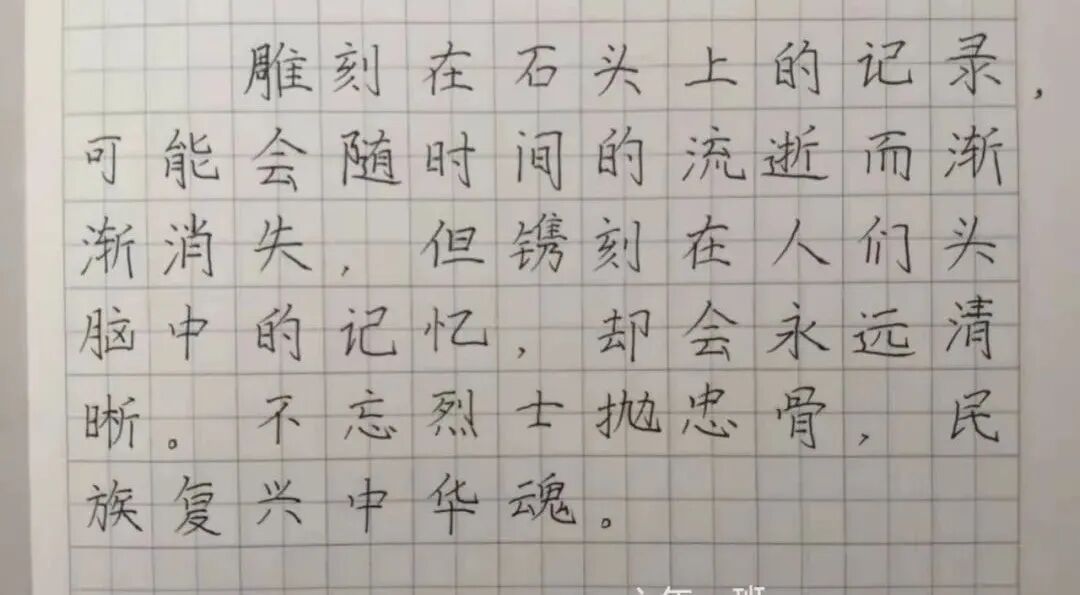 雕刻在石头上的记录，
可能会随时间的流逝而渐
渐消失，但镌刻在人们头
脑中的记忆，却会永远清
晰。不忘烈士抛忠骨，民
族复兴中华魂。